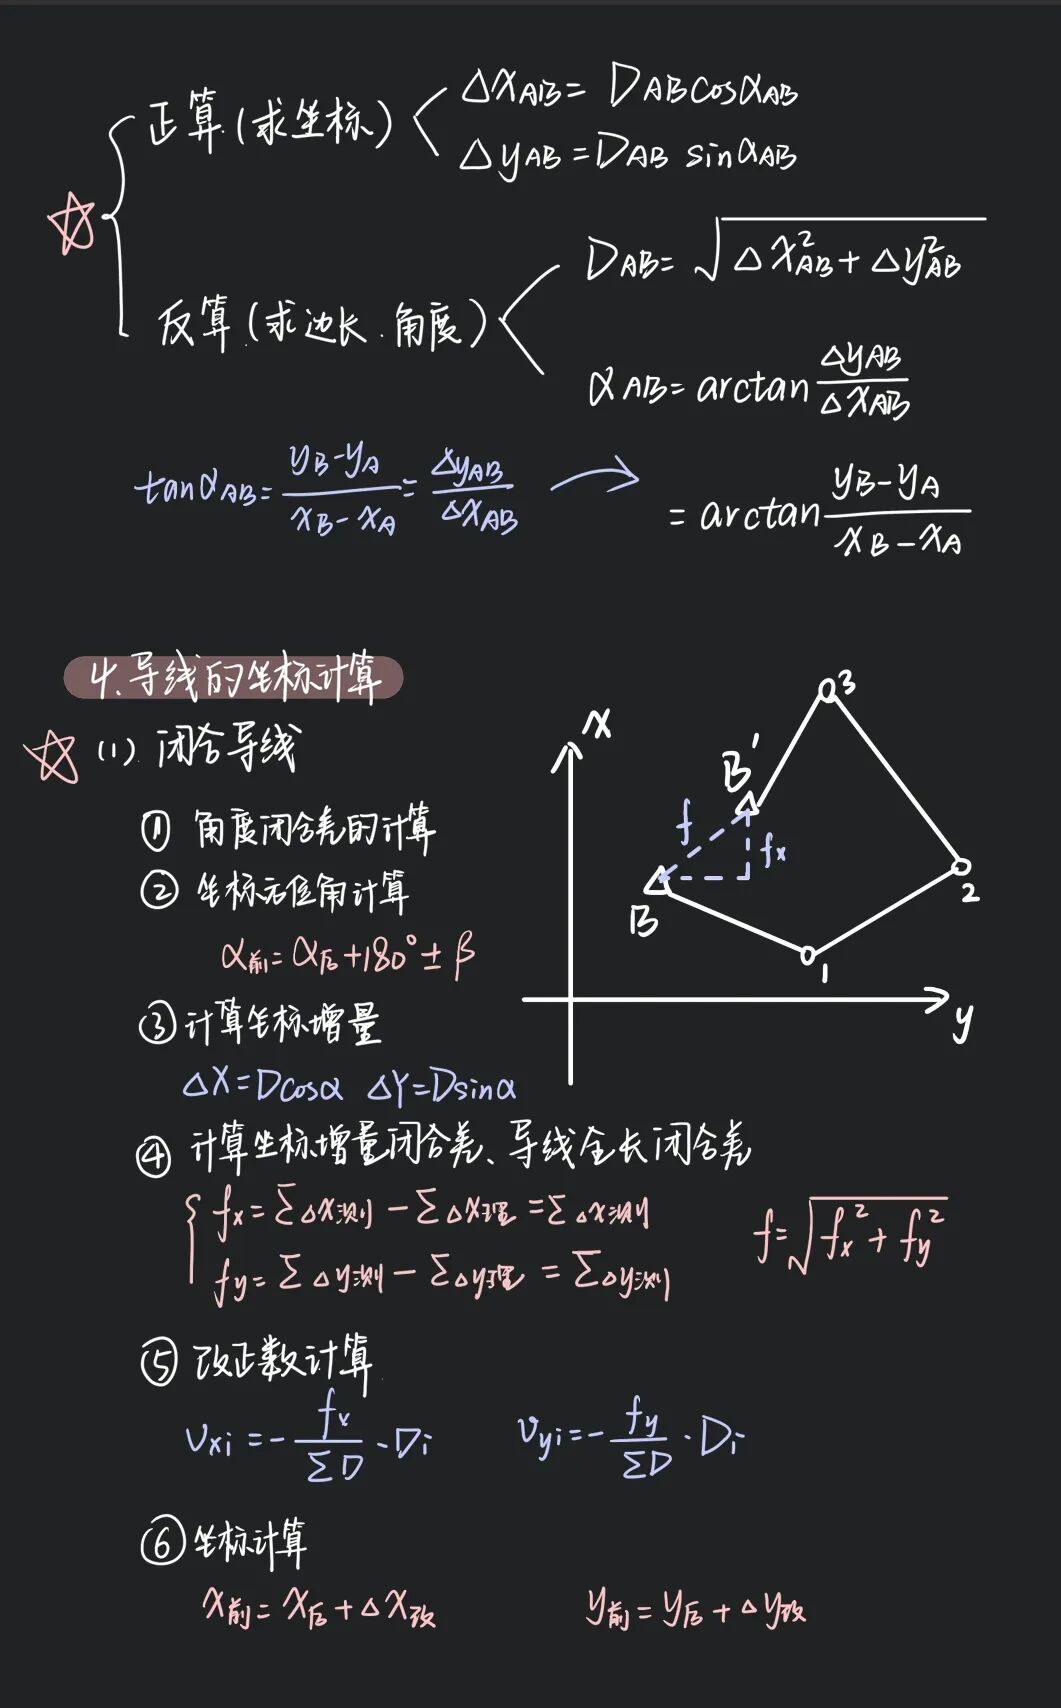 正算(求坐标)
ΔxAB=DABcosαAB
ΔyAB=DAB sinαAB
反算(求边长.角度)
DAB=√(Δx²AB+Δy²AB)
αAB=arctan ΔyAB/ΔxAB
tanαAB=(yB-yA)/(xB-xA)=ΔyAB/ΔxAB
=arctan (yB-yA)/(xB-xA)
4.导线的坐标计算
(1).闭合导线
① 角度闭合差的计算
② 坐标方位角计算
α前=α后+180°±β
③ 计算坐标增量
ΔX=Dcosα ΔY=Dsinα
x
y
B
B′
f
fx
1
2
3
④ 计算坐标增量闭合差、导线全长闭合差
fx=ΣΔx测-ΣΔx理=ΣΔx测
fy=ΣΔy测-ΣΔy理=ΣΔy测
f=√(fx²+fy²)
⑤ 改正数计算
vxi=-fx/ΣD·Di vyi=-fy/ΣD·Di
⑥ 坐标计算
x前=x后+Δx改 y前=y后+Δy改